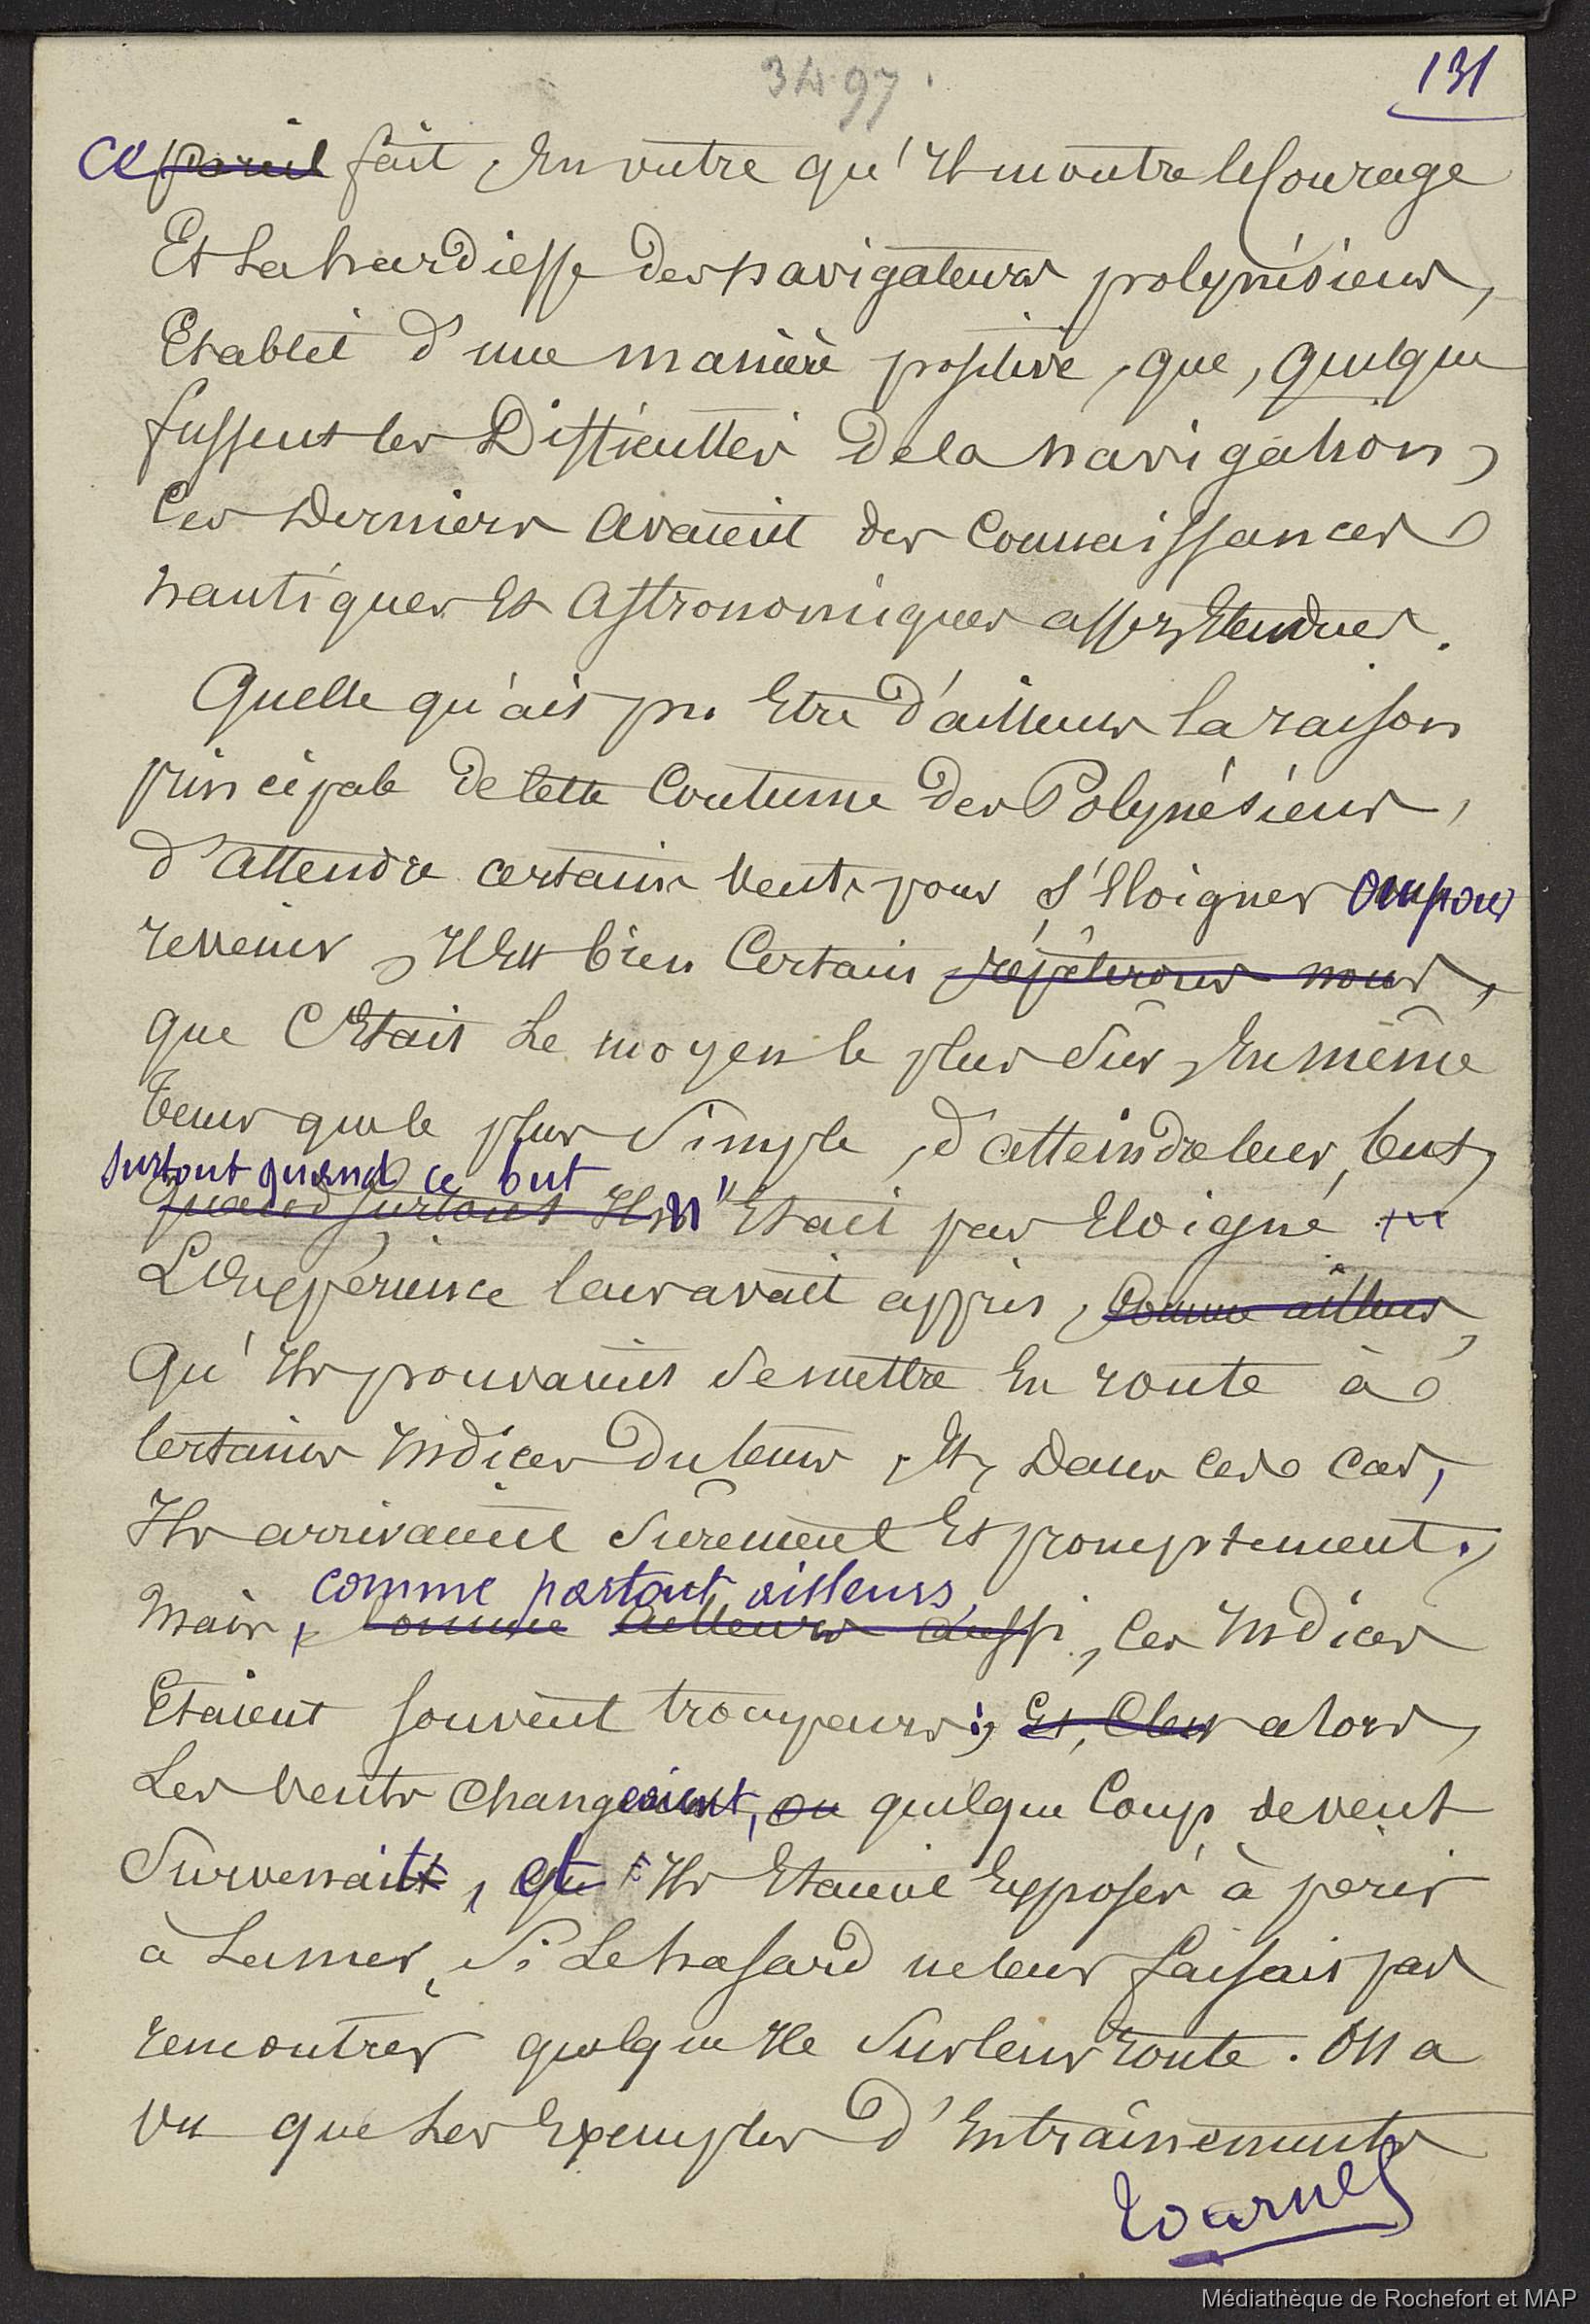 3497.
131
ce pareil fait, En outre qu'Il montre le Courage
Et la hardiesse des navigateurs polynésiens,
Etablit d'une manière positive, que, quelque
fussent les Difficultés de la navigation,
Ces Derniers avaient des Connaissances
nautiques Et Astronomiques assez Etendues.
Quelle qu'ait pu Etre d'ailleurs la raison
principale de Cette Coutume des Polynésiens,
d'attendre certains vents pour s'Eloigner ou pour
revenir, Il Est bien Certain, répèterons nous,
que C'Etait Le moyen le plus sûr, En même
tems que le plus simple, d'atteindre leur but,
surtout quand ce but
quand surtout Il n'Etait pas Eloigné.
L'Expérience leur avait appris, Comme ailleurs,
Qu'Ils pouvaient se mettre En route à
Certains Indices du tems, Et, Dans ces cas,
Ils arrivaient sûrement Et promptement;
comme partout ailleurs,
mais, Comme ailleurs aussi, Ces Indices
Etaient souvent trompeurs; alors,
Les vents changeaient, ou quelque Coup de vent
Survenait, et Ils Etaient Exposés à périr
à La mer, Si Le hasard ne leur faisait pas
rencontrer quelque Ile sur leur route. On a
vu que Les Exemples d'Entraînements
tournez
Médiathèque de Rochefort et MAP